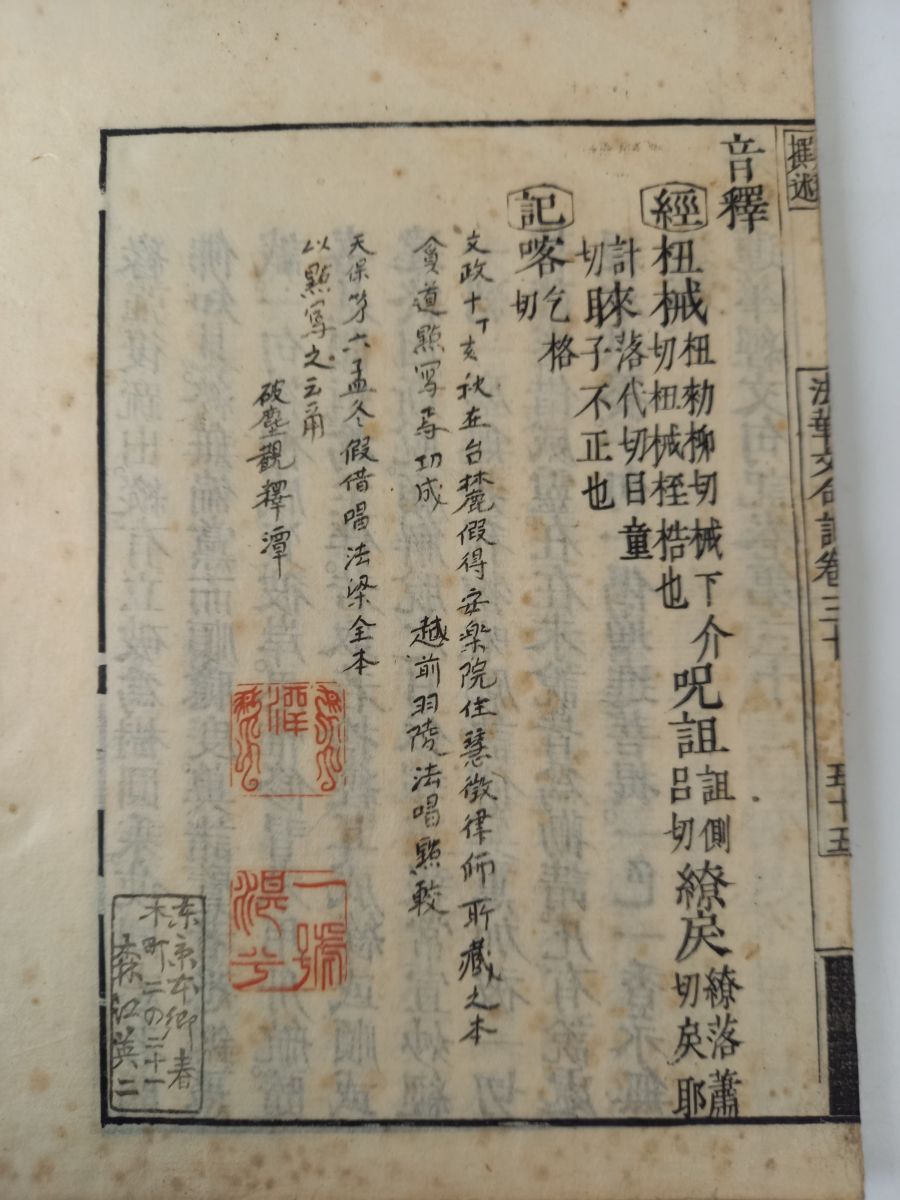 撰述
法華文句記卷三十
五十五
音釋
經 杻械 杻勑柳切械下介
切杻械桎梏也 呪詛 詛側
呂切 繚戾 繚落蕭
切戾耶
計 睞 落代切目童
切 子不正也
記 喀 乞格
切
文政十丁亥秋在台麓假得安樂院住慧徵律師所藏之本
貪道點写焉功成 越前羽陵法唱點較
天保第六孟冬假借唱法梁全本
以點写之云爾
破塵觀釋潭
潭
一號
东京本郷春
木町二の二十一
森江英二